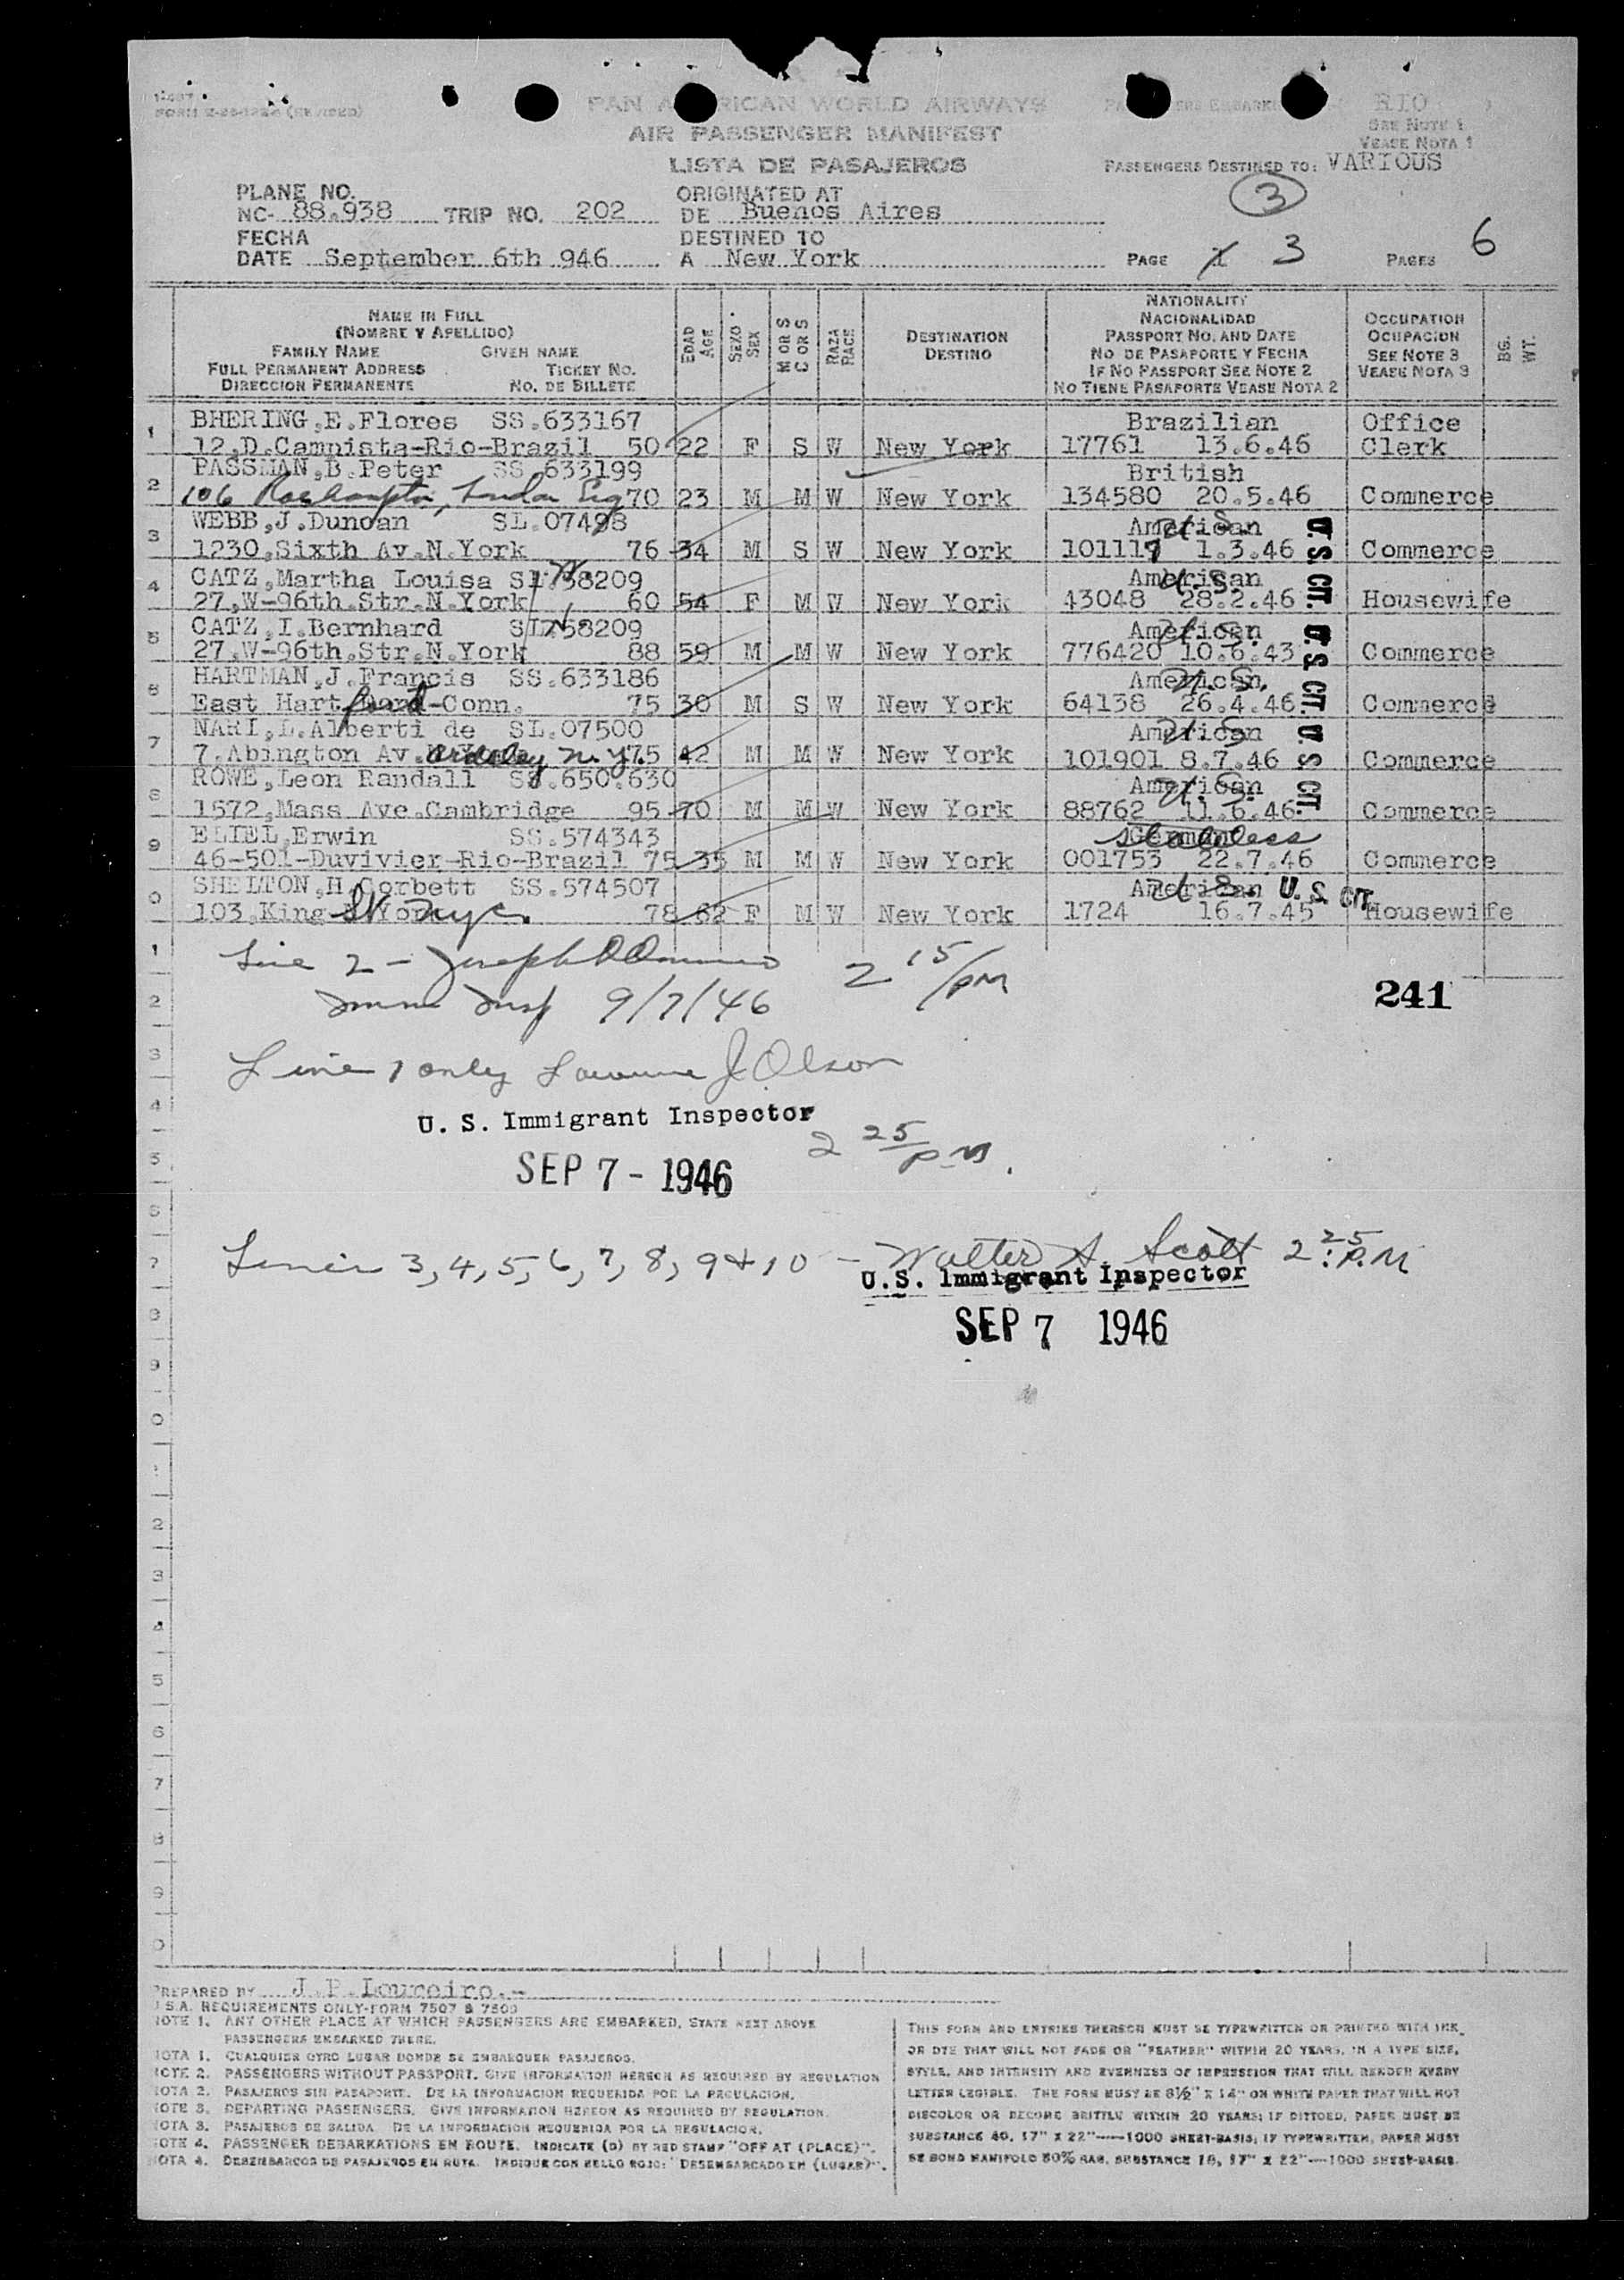 PAN AMERICAN WORLD AIRWAYS
AIR PASSENGER MANIFEST
LISTA DE PASAJEROS
RIO
SEE NOTE 1
VEASE NOTA 1
PASSENGERS DESTINED TO: VARIOUS
3
PLANE NO.
NC- 88.938 TRIP NO. 202
ORIGINATED AT
DE Buenos Aires
FECHA
DATE September 6th 946
DESTINED TO
A New York
PAGE 1 3 PAGES 6
NAME IN FULL
(NOMBRE Y APELLIDO)
FAMILY NAME GIVEN NAME
FULL PERMANENT ADDRESS TICKET NO.
DIRECCION PERMANENTE NO. DE BILLETE
EDAD AGE
SEXO SEX
M OR S
C OR S
RAZA RACE
DESTINATION
DESTINO
NATIONALITY
NACIONALIDAD
PASSPORT NO. AND DATE
NO DE PASAPORTE Y FECHA
IF NO PASSPORT SEE NOTE 2
NO TIENE PASAPORTE VEASE NOTA 2
OCCUPATION
OCUPACION
SEE NOTE 3
VEASE NOTA 3
BG. WT.
1 BHERING,E.Flores SS.633167 Brazilian Office
12,D.Campista-Rio-Brazil 50 22 F S W New York 17761 13.6.46 Clerk
2 PASSMAN,B.Peter SS.633199 British
106 Roehampton, London Eng 70 23 M M W New York 134580 20.5.46 Commerce
3 WEBB,J.Duncan SL.07498 American U.S. U.S. CIT.
1230,Sixth Av.N.York 76 34 M S W New York 101119 1.3.46 Commerce
4 CATZ,Martha Louisa SL.758209 American U.S.
27,W-96th.Str.N.York 60 54 F M W New York 43048 28.2.46 Housewife
5 CATZ,I.Bernhard SL.758209 American U.S. U.S. CIT.
27,W-96th.Str.N.York 88 59 M M W New York 776420 10.6.43 Commerce
6 HARTMAN,J.Francis SS.633186 American U.S.
East Hartford-Conn. 75 30 M S W New York 64138 26.4.46 Commerce
7 NARI,L.Alberti de SL.07500 American U.S. U S CIT.
7.Abington Av. Ardsley N.Y. 75 42 M M W New York 101901 8.7.46 Commerce
8 ROWE,Leon Randall SS.650.630 American U.S.
1572,Mass Ave.Cambridge 95 70 M M W New York 88762 11.6.46 Commerce
9 ELIEL,Erwin SS.574343 German stateless
46-501-Duvivier-Rio-Brazil 75 35 M M W New York 001753 22.7.46 Commerce
0 SHELTON,H.Corbett SS.574507 American U.S. U.S. CIT.
103.King St NYC. 78 62 F M W New York 1724 16.7.45 Housewife
Line 2 - Joseph 2 15/PM
Imm Insp 9/7/46
241
Line 1 only Lawrence J. Olson
U. S. Immigrant Inspector
2 25 PM.
SEP 7 - 1946
Lines 3, 4, 5, 6, 7, 8, 9 & 10 - Walter A. Scott 2:25 P.M
U.S. Immigrant Inspector
SEP 7 1946
PREPARED BY J.P.Loureiro.-
U.S.A. REQUIREMENTS ONLY-FORM 7507 & 7509
NOTE 1. ANY OTHER PLACE AT WHICH PASSENGERS ARE EMBARKED, STATE NEXT ABOVE
PASSENGERS EMBARKED THERE.
NOTA 1. CUALQUIER OTRO LUGAR DONDE SE EMBARQUEN PASAJEROS.
NOTE 2. PASSENGERS WITHOUT PASSPORT. GIVE INFORMATION HEREON AS REQUIRED BY REGULATION
NOTA 2. PASAJEROS SIN PASAPORTE. DE LA INFORMACION REQUERIDA POR LA REGULACION.
NOTE 3. DEPARTING PASSENGERS. GIVE INFORMATION HEREON AS REQUIRED BY REGULATION.
NOTA 3. PASAJEROS DE SALIDA. DE LA INFORMACION REQUERIDA POR LA REGULACION.
NOTE 4. PASSENGER DEBARKATIONS EN ROUTE. INDICATE (D) BY RED STAMP "OFF AT (PLACE)".
NOTA 4. DESEMBARCOS DE PASAJEROS EN RUTA. INDIQUE CON SELLO ROJO: "DESEMBARCADO EN (LUGAR)".
THIS FORM AND ENTRIES THEREON MUST BE TYPEWRITTEN OR PRINTED WITH INK
OR DYE THAT WILL NOT FADE OR "FEATHER" WITHIN 20 YEARS, IN A TYPE SIZE,
STYLE, AND INTENSITY AND EVENNESS OF IMPRESSION THAT WILL RENDER EVERY
LETTER LEGIBLE. THE FORM MUST BE 8½" X 14" ON WHITE PAPER THAT WILL NOT
DISCOLOR OR BECOME BRITTLE WITHIN 20 YEARS; IF DITTOED, PAPER MUST BE
SUBSTANCE 40, 17" X 22"—1000 SHEET-BASIS; IF TYPEWRITTEN, PAPER MUST
BE BOND MANIFOLD 50% RAG, SUBSTANCE 18, 17" X 22"—1000 SHEET-BASIS.